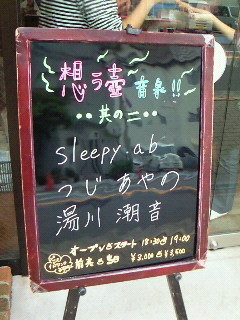 想う壺
音泉!!
・・其の二・・
sleepy.ab
つじあやの
湯川潮音
オープン&スタート 18:30&19:00
前売&当日 ¥3,000&¥3,500